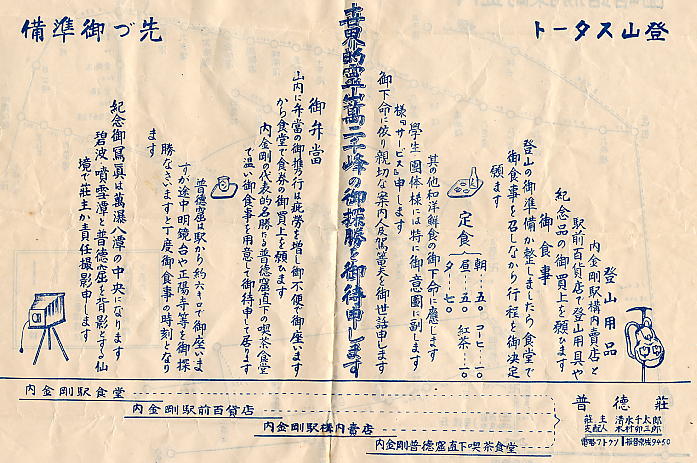 登山スタート
先づ御準備
登山用品
内金剛駅構内賣店と
駅前百貨店で登山用具や
紀念品の御買上を願ひます
御食事
登山の御準備が整ひましたら食堂で
御食事を召しながら行程を御決定
願ます
定食
朝…五〇
昼…五〇
夕…七〇
コーヒ…一〇
紅茶…一〇
其の他和洋鮮食の御下命に應じます
学生団体様には特に御意圖に副します
様『サービス』申します
御下命に依り親切な案内人及駕篭夫を御世話申します
世界的霊山萬二千峰の御探勝を御待申します
御弁當
山内に弁當の御携行は疲労を増し御不便で御座います
から食堂で食券の御買上を願ひます
内金剛の代表的名勝たる普徳窟直下の喫茶食堂
で温い御食事を用意して御待申して居ります
普徳窟は駅から約六キロで御座いま
すが途中明鏡台や正陽寺等を御探
勝なさいますと丁度御食事の時刻となり
ます
紀念御寫真は萬瀑八潭の中央になります
碧波、噴雪潭と普徳窟を背影とする仙
境で荘主が責任撮影申します
内金剛駅食堂
内金剛駅前百貨店
内金剛駅構内賣店
内金剛普徳窟直下喫茶食堂
普徳荘
荘主 清水千太郎
支配人 木村卯三郎
電略フトクソ 振替京城9450